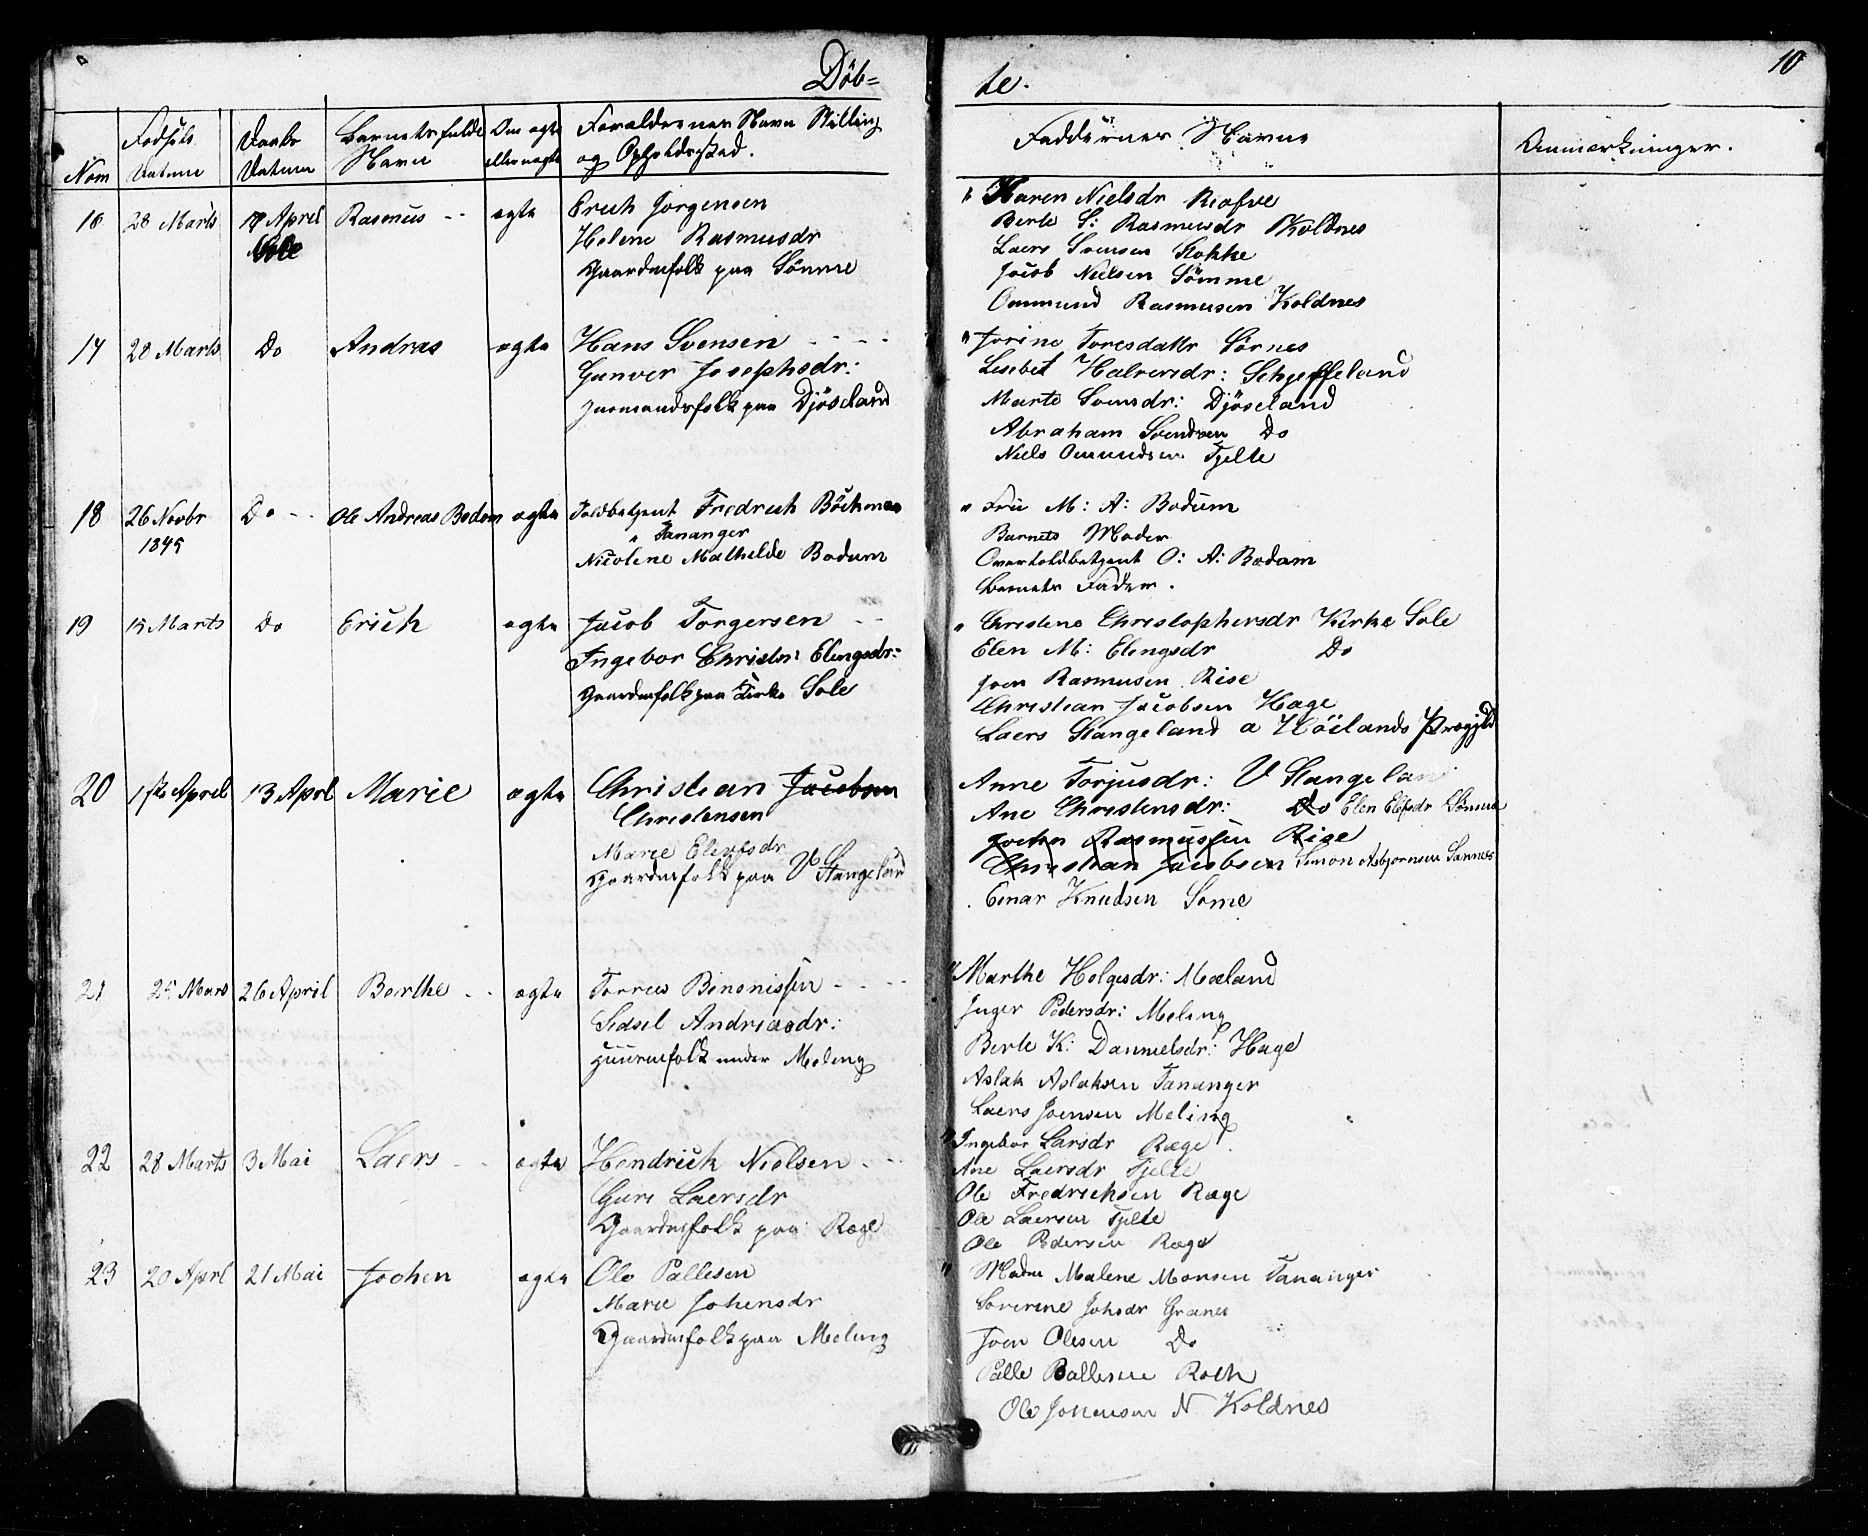 Döb=
te.
10
Nom
Fødsels Datum
Daabs Datum
Barnets fulde Navn
Om ægte eller uægte
Forældrenes Navn Stilling og Opholdssted.
Faddernes Navne
Anmærkninger.
16 28 Marts April Sole Rasmus -- ægte
Erich Jorgensen
Helene Rasmusdr
Gaardmfolk paa Sömme
" Karen Nielsdr Ræfve
Berte S: Rasmusdr Koldnes
Laers Svensen Stokke
Jacob Nielsen Sömme
Ommund Rasmusen Koldnes
17 28 Marts Do Andras ægte
Hans Svensen
Gunver Josephsdr:
paa Djöseland
" Jorine Toresdattr Sörnes
Lisebet Halversdr: Schjeffeland
Marte Svensdr: Djöseland
Abraham Svendsen Do
Niels Omundsen Tjelte
18 26 Novbr 1845 Do -- Ole Andreas Bodom ægte
Toldbetjent Fredrich Böckman
" Tananger
Nicolene Mathilde Bodum
" Fru M: A: Bodum
Barnets Moder
Overtoldbetjent O: A: Bodam
Barnets Fader.
19 15 Marts Do Erich ægte
Jacob Torgersen
Ingebor Christn: Elingsdr:
Gaardmfolk paa Kirke Sole
" Christene Christophersdr Kirke Sole
Elen M: Elengsdr Do
Joen Rasmusen Rise
Christian Jacobsen Hage
Laers Stangeland a Höilands Præstegjeld
20 1ste April 13 Aprl Marie ægte
Christian Jacobsen
Christensen
Marie Elevfsdr
Gaardmfolk paa V Stangeland
Anne Torjusdr: V Stangeland
Ane Christensdr: Do Elen Elefsdr Sömme
Joehn Rasmussen Rise
Christian Jacobsen Simon Asbjornsen Sannes
Einar Knudsen Some
21 25 Mars 26 April Berthe -- ægte
Torres Benonissen
Sidsel Andreasdr:
Huusmfolk under Meling
" Marthe Helgesdr: Mæland
Inger Pedersdr: Meling
Berte K: Dannielsdr: Hage
Aslak Aslaksen Tananger
Laers Joensen Meling
22 28 Marts 3 Mai Laers ægte
Hendrick Nielsen
Guri Laersdr
Gaardmfolk paa Ræge
" Ingebor Larsdr Ræge
Ane Laersdr Tjelte
Ole Fredrichsen Ræge
Ole Laersen Tjelte
Ole Pedersen Ræge
23 20 Aprl 21 Mai Jochen ægte
Ole Pallesen
Marie Johensdr
Gaardmfolk paa Meling
" Madm Malene Monsen Tananger
Soverine Johsdr Granes
Joen Olesen Do
Palle Ballesen Roth
Ole Johensen N Koldnes